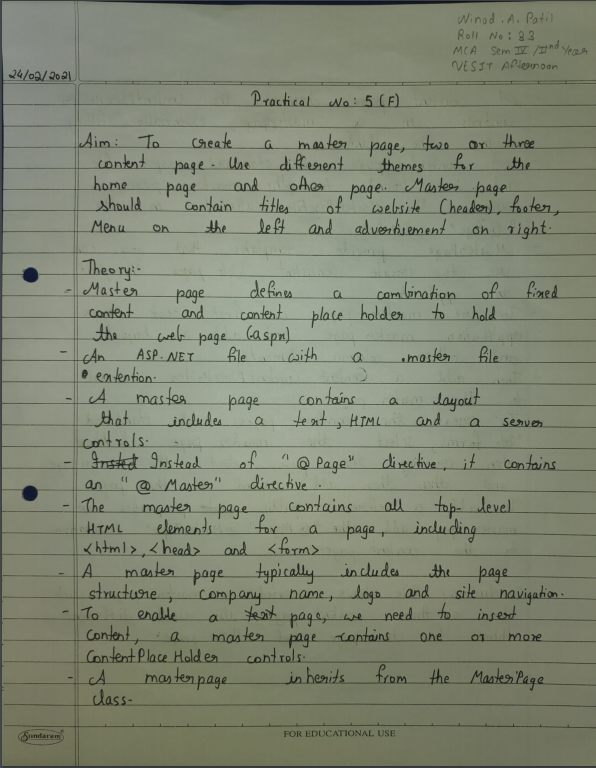 Vinod . A. Patil
Roll No : 33
MCA Sem IV / IInd Year
VESIT Afternoon
24/02/2021
Practical No : 5 (F)
Aim : To create a master page, two or three
content page. Use different themes for the
home page and other page. Master page
should contain titles of website (header), footer,
Menu on the left and advertisement on right.
Theory:-
- Master page defines a combination of fixed
content and content place holder to hold
the web page (.aspx)
- An ASP.NET file with a .master file
extention.
- A master page contains a layout
that includes a text, HTML and a server
controls.
- Insted Instead of "@ Page" directive, it contains
an "@ Master" directive.
- The master page contains all top-level
HTML elements for a page, including
<html>, <head> and <form>
- A master page typically includes the page
structure, company name, logo and site navigation.
- To enable a text page, we need to insert
Content, a master page contains one or more
ContentPlace Holder controls.
- A masterpage inherits from the MasterPage
class.
Sundaram
FOR EDUCATIONAL USE